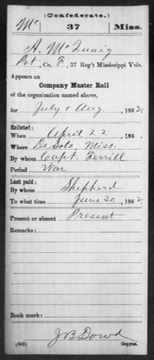 (Confederate.)
Mc 37 Miss.
A. McQuaig
Pvt., Co. F, 37 Reg't Mississippi Vols.
Appears on
Company Muster Roll
of the organization named above,
for July & Aug, 1862.
Enlisted:
When April 22, 186
Where DeSoto, Miss.
By whom Capt. Terrill
Period War
Last paid:
By whom Shepherd
To what time June 30, 1862.
Present or absent Present
Remarks:
Book mark:
J B Dowd
(642) Copyist.